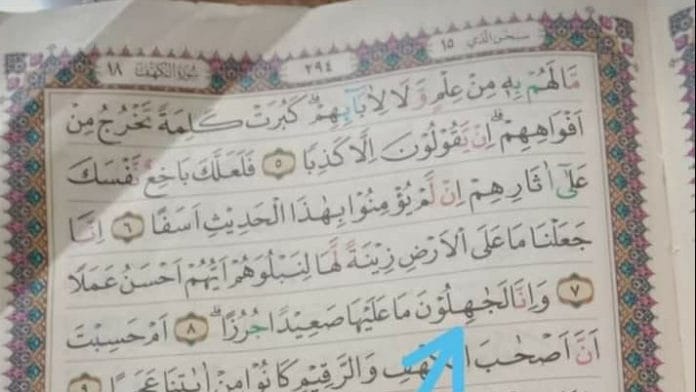 سُبْحٰنَ الَّذِيْ ١٥ ٢٩٤ سُوْرَةُ الْكَهْفِ ١٨
مَّا لَهُمْ بِهٖ مِنْ عِلْمٍ وَّلَا لِاٰبَآىِٕهِمْۗ كَبُرَتْ كَلِمَةً تَخْرُجُ مِنْ
اَفْوَاهِهِمْۗ اِنْ يَّقُوْلُوْنَ اِلَّا كَذِبًا ٥ فَلَعَلَّكَ بَاخِعٌ نَّفْسَكَ
عَلٰٓى اٰثَارِهِمْ اِنْ لَّمْ يُؤْمِنُوْا بِهٰذَا الْحَدِيْثِ اَسَفًا ٦ اِنَّا
جَعَلْنَا مَا عَلَى الْاَرْضِ زِيْنَةً لَّهَا لِنَبْلُوَهُمْ اَيُّهُمْ اَحْسَنُ عَمَلًا
٧ وَاِنَّا لَجٰهِلُوْنَ مَا عَلَيْهَا صَعِيْدًا جُرُزًاۗ ٨ اَمْ حَسِبْتَ
اَنَّ اَصْحٰبَ الْكَهْفِ وَالرَّقِيْمِ كَانُوْا مِنْ اٰيٰتِنَا عَجَبًا ٩